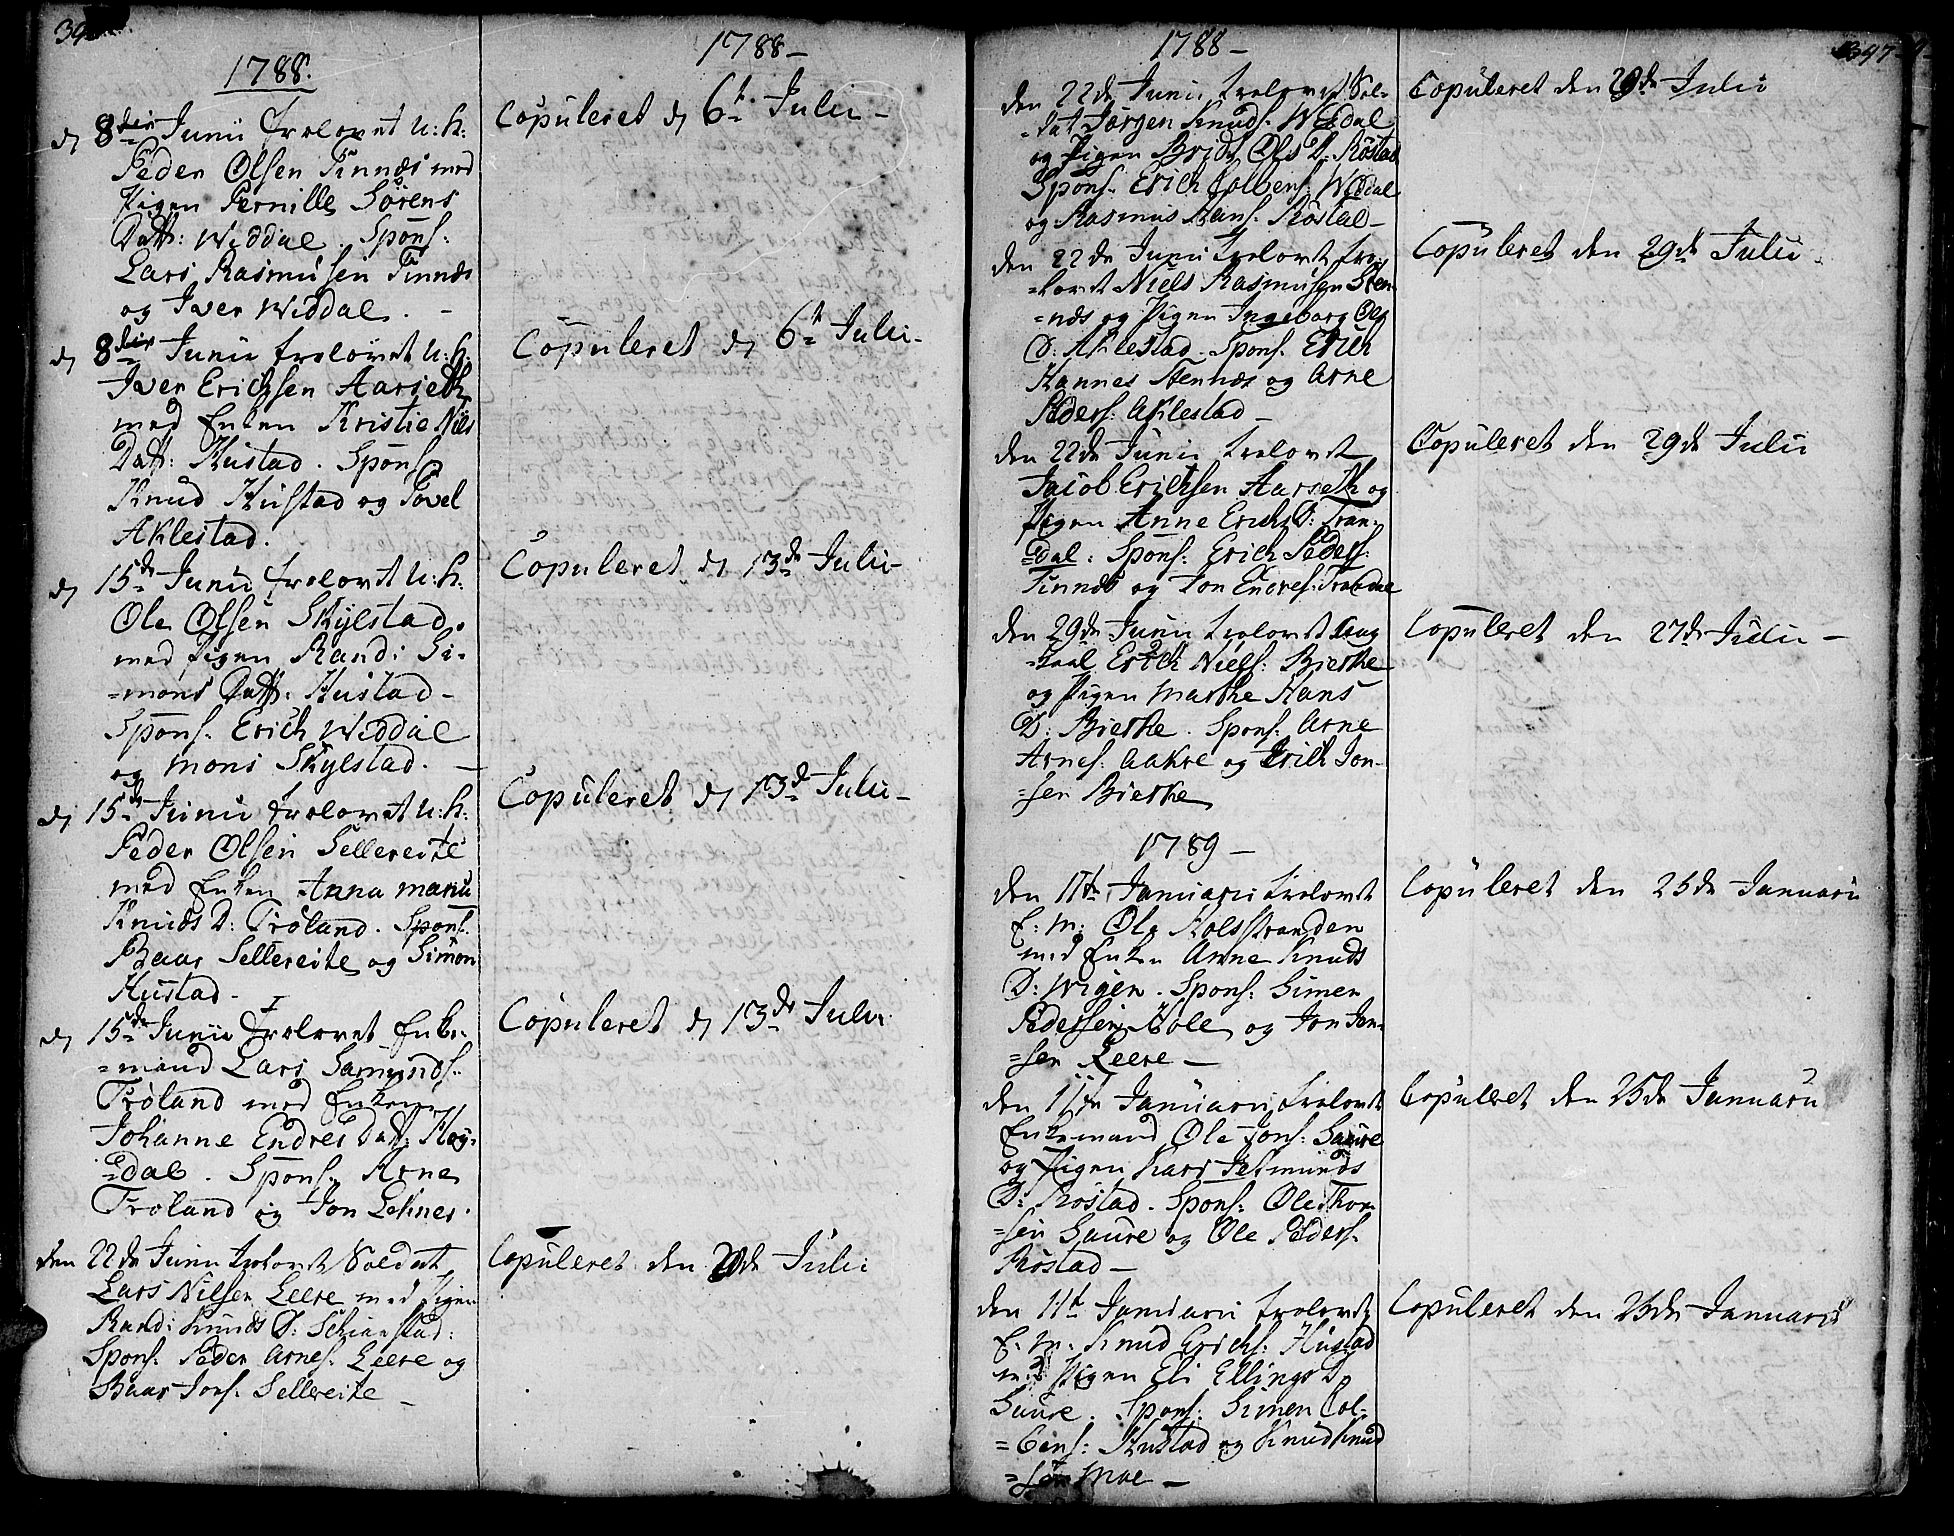 1788.
d 8de Junii trolovet u: k:
Peder Olsen Tinnæs med
Pigen Pernille Sørens
Datt: Widdal. Spons:
Lars Rasmusen Tinnæs
og Iver Widdal. -
d 8de Junii trolovet u: k:
Iver Erichsen Aarseth
med Enken Kristie Nils
Datt: Hustad. Spons
Knud Hustad og Povel
Aklestad.
d 15de Junii trolovet u: k:
Ole Olsen Skylstad
med Pigen Randi Si-
=mons Datt: Hustad -
Spons. Erich Widdal
og Mons Skylstad. -
d 15de Junii trolovet u: k:
Peder Olsen Sellereite
med Enken Anna Maria
Knuds D: Trøland. Spons.
Baar Sellereite og Simon
Hustad -
d 15de Junii trolovet Enke-
=mand Lars Samunds.
Trøland med Enken
Johanne Endres Datt: Høy-
=dal. Spons. Arne
Trøland og Jon Lehner.
den 22de Junii trolovet Soldat
Lars Nilsen Leere med Pigen
Randi Knuds D:
Spons. Peder Arnes. Leere og
Baar Jons. Sellereite -
1788 -
Copuleret d 6te Julii -
Copuleret d 6te Julii -
Copuleret d 13de Julii -
Copuleret d 13de Julii -
Copuleret d 13de Julii
Copuleret den 20de Julii
1788 -
den 22de Junii trolovet Sol-
=dat Jørgen Knuds. Widdal
og Pigen Brit Ols D: Røstad
Spons. Erich Colbens. Widdal
og Rasmus Hans. Røstad -
den 22de Junii trolovet tro-
=lovet Niels Rasmusen Sten-
=næs og Pigen Ingeborg Ols
D: Aklestad. Spons. Erich
Hannes Stennæs og Arne
Peders: Aklestad -
den 22de Junii trolovet
Jacob Erichsen Aarseth og
Pigen Anne Erichs D: Tran-
=dal: Spons: Erich Peders.
Tinnæs og Jon Endres: Trandal
den 29de Junii trolovet
Erich Niels: Bierke
og Pigen Marthe Hans
D: Bierke. Spons. Arne
Arnes: Aakre og Erich Jon-
=sen Bierke
1789 -
den 11te Januarii trolovet
E: M: Ole Kolsstranden
med Enken Anne Knuds
D: Wigen. Spons: Simen
Pedersen Hole og Jon Jon-
=sen Leere -
den 11te Januarii trolovet
Enkemand Ole Jons: Saure
og Pigen Kari Jetmunds
D: Røstad. Spons: Ole Thor-
=sen Saure og Ole Peders.
Røstad -
den 11te Januarii trolovet
E. M. Knud Erichs: Hustad
med Pigen Eli Ellings D
Saure. Spons: Simen Col-
=bens: Hustad og Knud Knud
=sen Moe -
347
Copuleret den 20de Julii
Copuleret den 29de Julii
Copuleret den 29de Julii
Copuleret den 27de Julii -
Copuleret den 25de Januarii
Copuleret den 25de Januarii
Copuleret den 25de Januarii